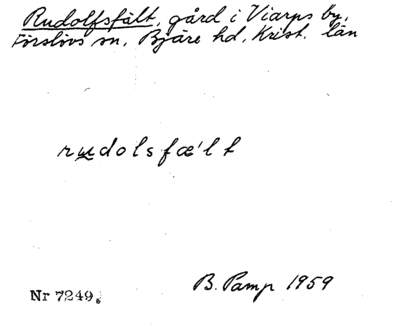 Rudolfsfält, gård i Viarps by,
Förslövs sn, Bjäre hd, Krist. län
rudolsfæ'lt
B. Pamp 1959
Nr 7249.